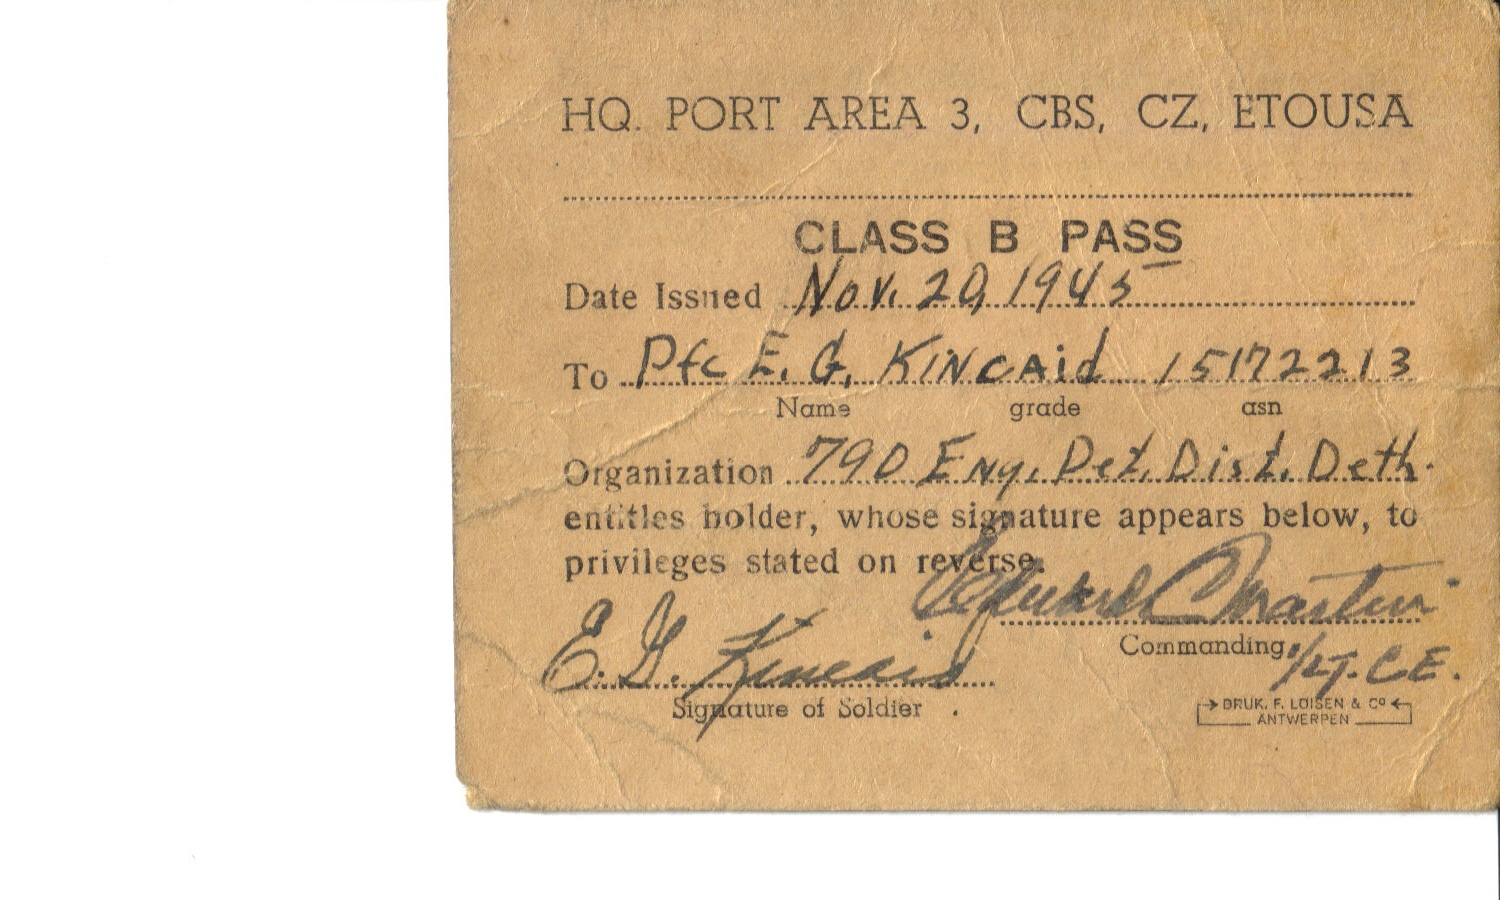 HQ. PORT AREA 3, CBS, CZ, ETOUSA
CLASS B PASS
Date Issued Nov. 20, 1945
To Pfc E. G. KINCAid 15172213
Name grade asn
Organization 790 Eng. Pet. Dist. Deth.
entitles holder, whose signature appears below, to
privileges stated on reverse.
Edward C Martin
Commanding
1/LT. C.E.
E. G. Kincaid
Signature of Soldier .
DRUK. F. LOISEN & Cº
ANTWERPEN